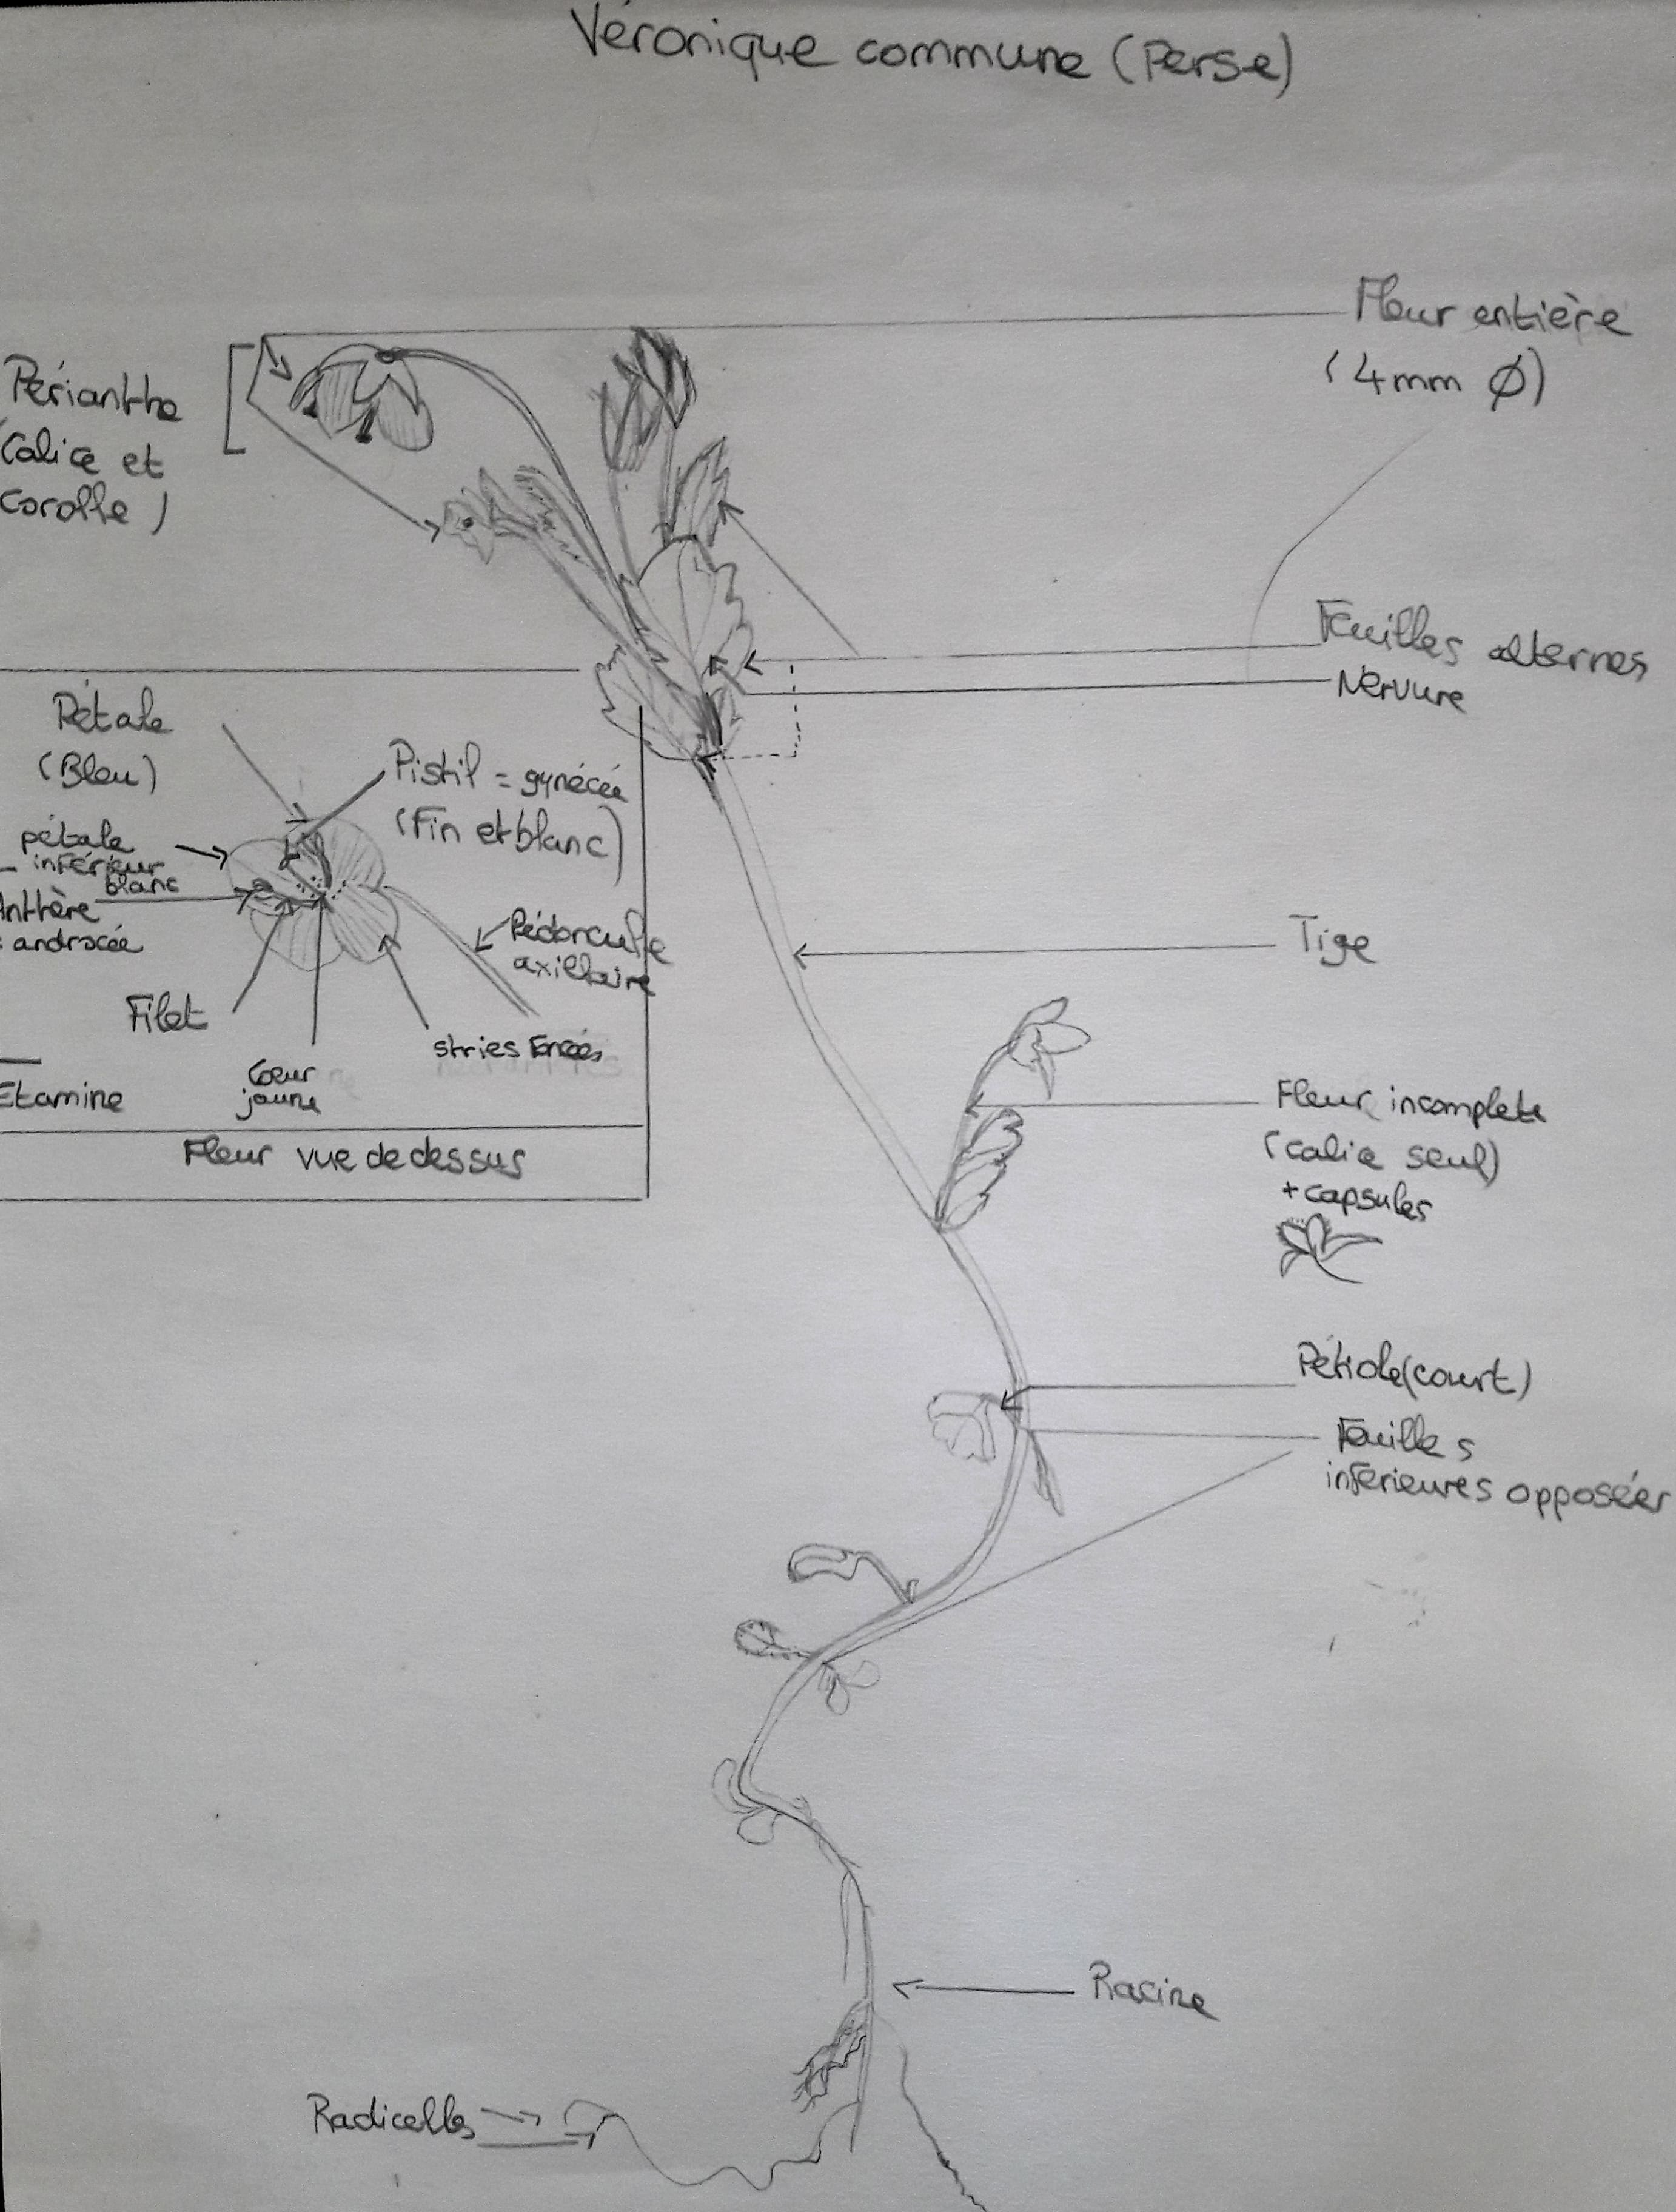 Véronique commune (Perse)
Fleur entière
(4mm Ø)
Périanthe
(Calice et
Corolle)
Feuilles alternes
Nervure
Pétale
(Bleu)
Pistil = gynécée
(Fin et blanc)
pétale
inférieur
blanc
Anthère
= androcée
Pédoncule
axillaire
Filet
Cœur
jaune
stries foncées
Etamine
Fleur vue de dessus
Tige
Fleur incomplète
(calice seul)
+ capsules
Pétiole (court)
Feuilles
inférieures opposées
Racine
Radicelles